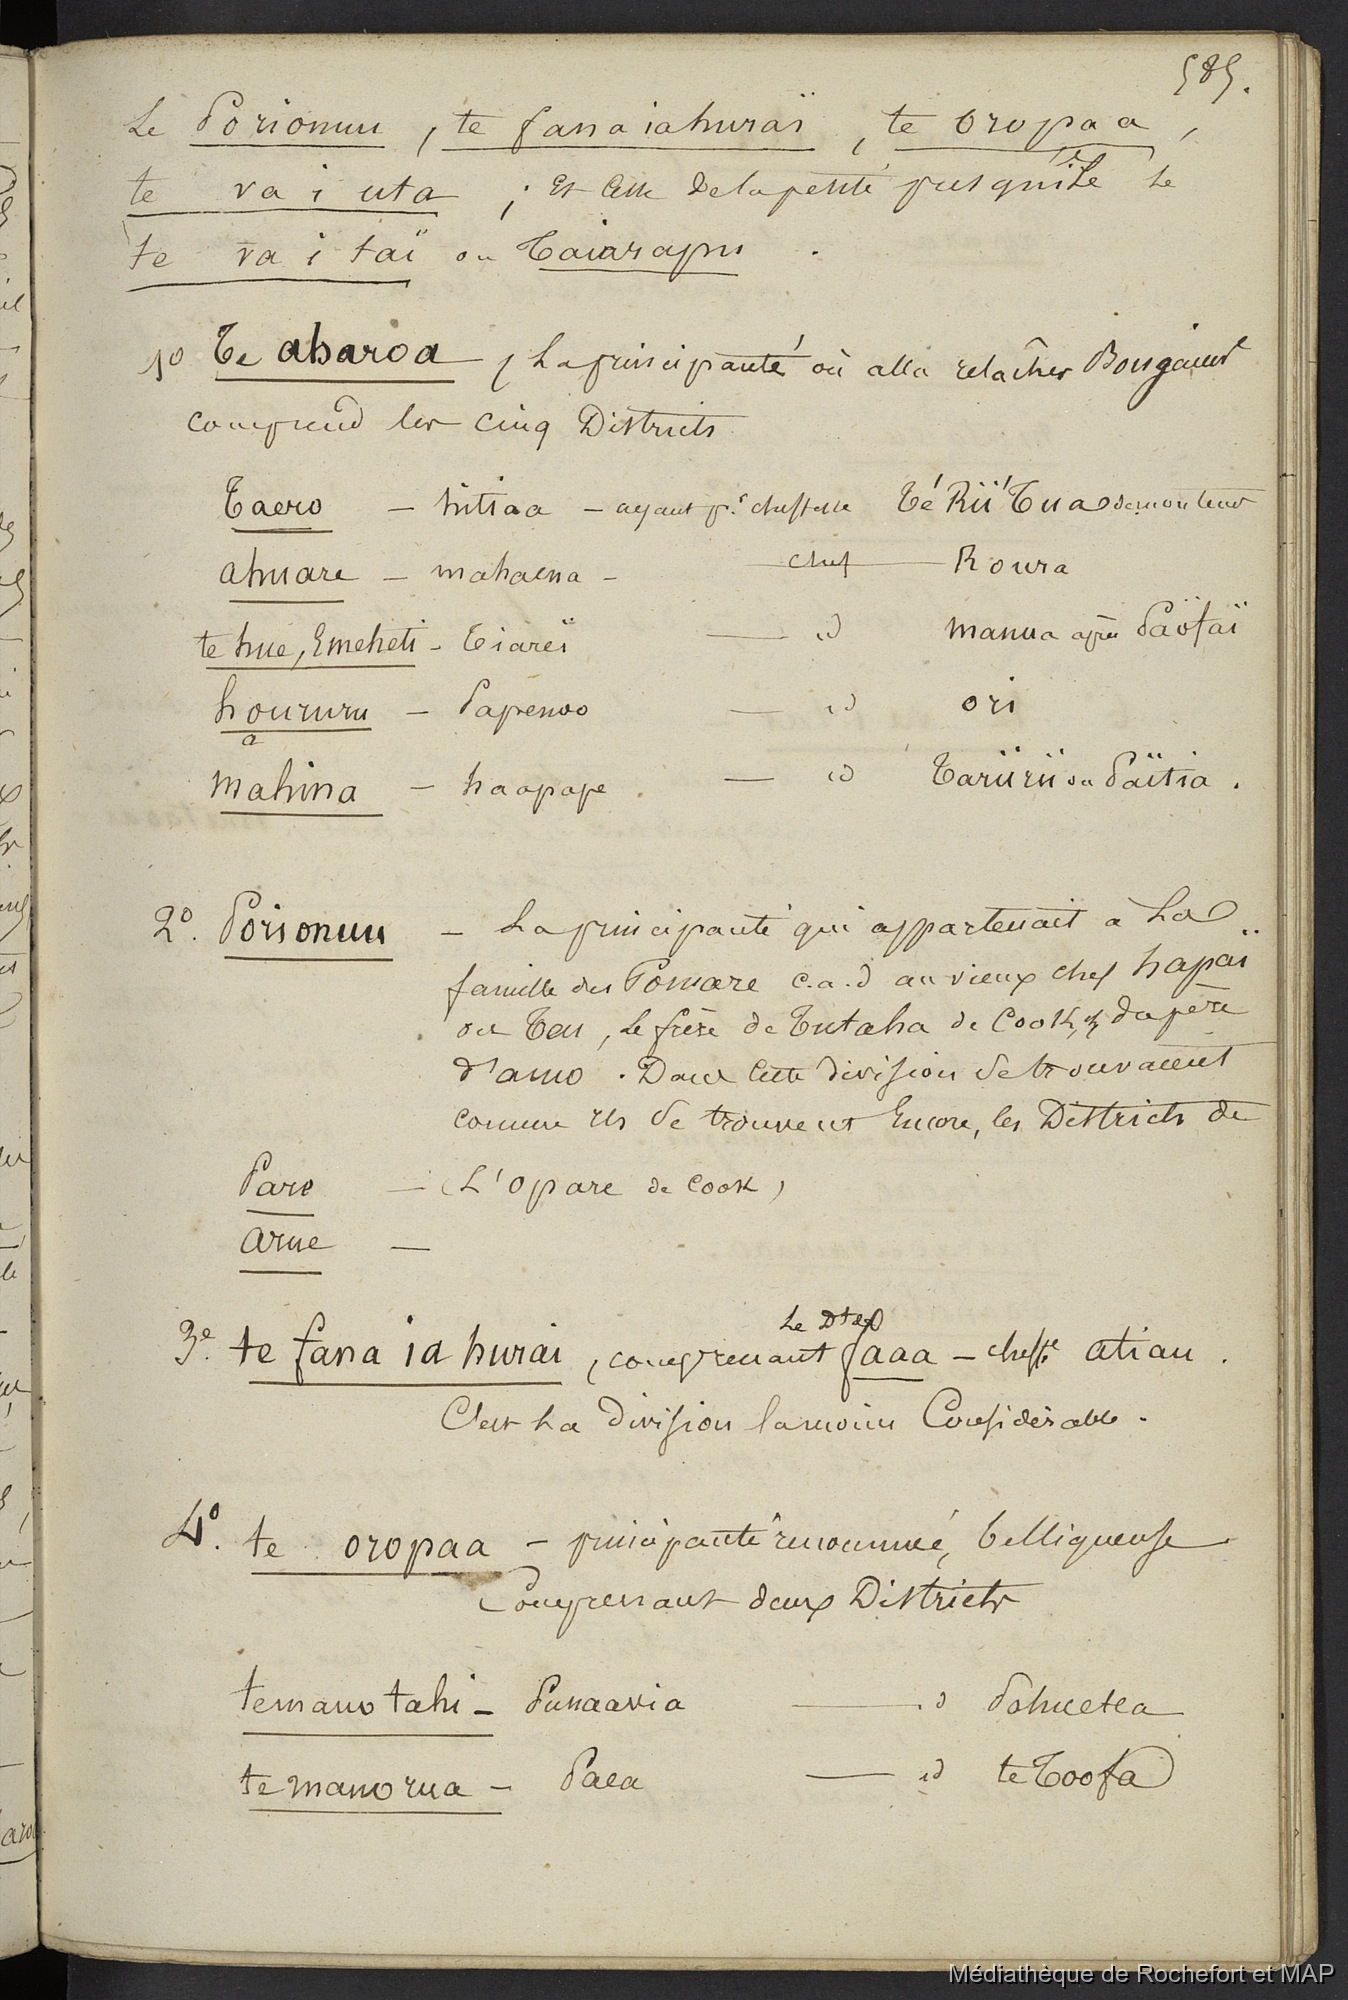 585.
Le Porionuu, te fana ia huraï, te oropaa,
te va i uta; Et Celle de la petite presqu'île le
te va i taï ou Taiarapu.
1º Te aharoa, La principauté où alla relâcher Bougainv^l
comprend les cinq Districts
Taero — hitiaa — ayant p.r cheffesse Té Rii Tua
ahuare — mahaena — chef — Roura
te hue, Emeheti - Tiareï — id manua après Païofaï
houruru — Papenoo — id ori
a
mahina — haapape — id Tariirii ou Païtia.
2º. Porionuu — La principauté qui appartenait à La
famille des Pomare c.a.d au vieux chef hapaï
ou Teu, Le frère de Tutaha de Cook, & du père
d'amo. Dans Cette division Se trouvaient
comme ils Se trouvent Encore, les Districts de
Pare — (L'Opare de Cook)
arue —
Le Dt de
3e. te fana ia hurai, comprenant faaa — cheffe atiau.
C'est La Division la moins Considérable.
4º. te oropaa — principauté renommée, belliqueuse
Comprenant deux Districts
temano tahi — Punaavia — d Pohuetea
te mano rua — Paea — id te Toofa
Médiathèque de Rochefort et MAP